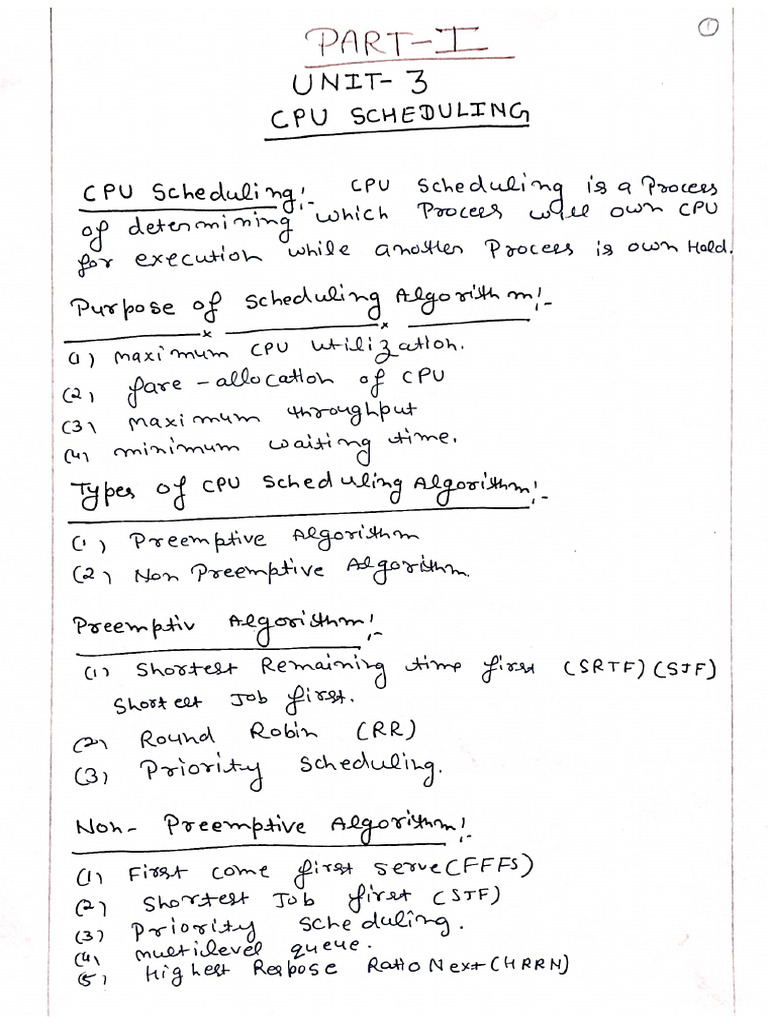 1
PART-I
UNIT- 3
CPU SCHEDULING
CPU Scheduling:- CPU Scheduling is a Process
of determining which Process will own CPU
for execution while another Process is own Hold.
Purpose of Scheduling Algorithm:-
(1) maximum CPU utilization.
(2) fare-allocation of CPU
(3) maximum throughput
(4) minimum waiting time.
Types of CPU Scheduling Algorithm:-
(1) Preemptive Algorithm
(2) Non Preemptive Algorithm.
Preemptiv Algorithm:-
(1) Shortest Remaining time first (SRTF) (SJF)
Shortest Job first.
(2) Round Robin (RR)
(3) Priority Scheduling.
Non- Preemptive Algorithm:-
(1) First come first serve (FFFS)
(2) Shortest Job first (SJF)
(3) Priority Scheduling.
(4) multilevel queue.
(5) Highest Respose Ratio Next (HRRN)